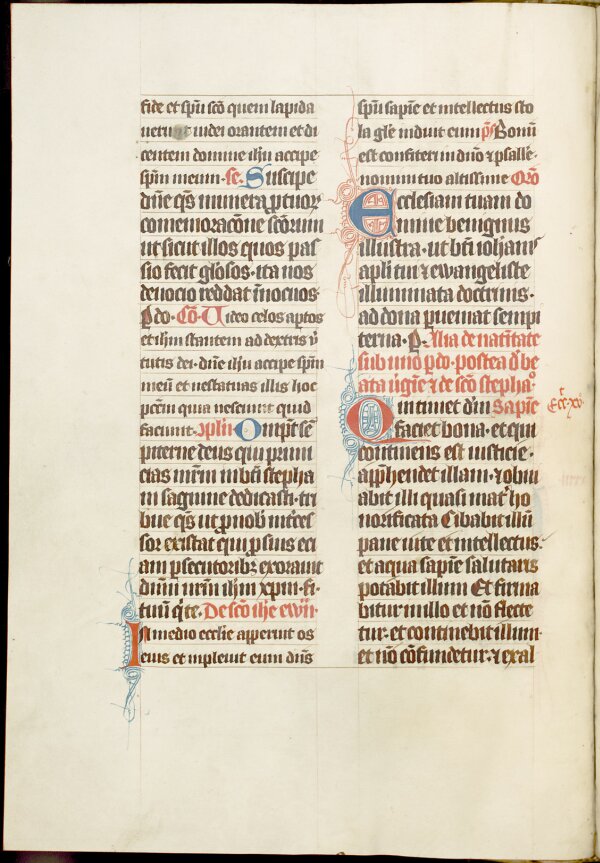 fide et spu sco quem lapida
ueru t iudei orantem et di
centem domine ihu accipe
spm meum. se. Suscipe
dne qs munera p tuor
comemoracone scorum
ut sicut illos quos pas
sio fecit glosos. ita nos
deuocio reddat inocuos.
P do. Co. Uideo celos aptos
et ihm stantem ad dextris u
tutis dei. dne ihu accipe spm
meu et ne statuas illis hoc
pccm quia nesciunt quid
faciunt. Omps se
piterne deus qui primi
cias mrm in bti stepha
ni sanguine dedicasti. tri
bue qs ut p nob intces
sor existat qui p suis eci
am psecutoribz exorauit
dnm nrm ihm xpm fi.
tuum q te. De sco ihe ewn.
In medio ecclie apperuit os
eius et inpleuit eum dns
spu sapie et intellectus sto
la gle induit eum ps Bonu
est confiteri in dno et psalle.
nomini tuo altissime Oro
Ecclesiam tuam do
mine benignus
illustra. ut bti iohanis
apli tui et ewangeliste
illuminata doctrinis.
ad dona pueniat sempi
terna. P. Alia de natitate
sub uno p do. postea d be
ata ugie et de sco stepha.
Qui timet dm Sapie
faciet bona. et qui
continens est iusticie.
apphendet illam. et obui
abit illi quasi mat ho
norificata Cibabit illu
pane uite et intellectus.
et aqua sapie salutaris
potabit illum Et firma
bitur in illo et no flecte
tur. et continebit illum.
et no cofundetur. et exal
Ecc. xv